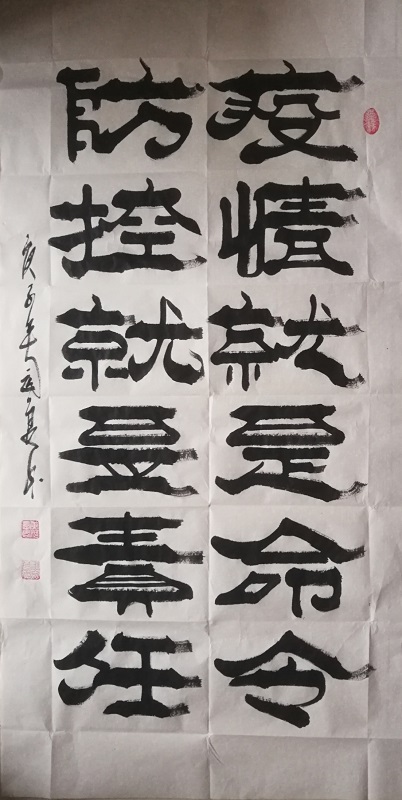 疫情就是命令
防控就是责任
庚子年